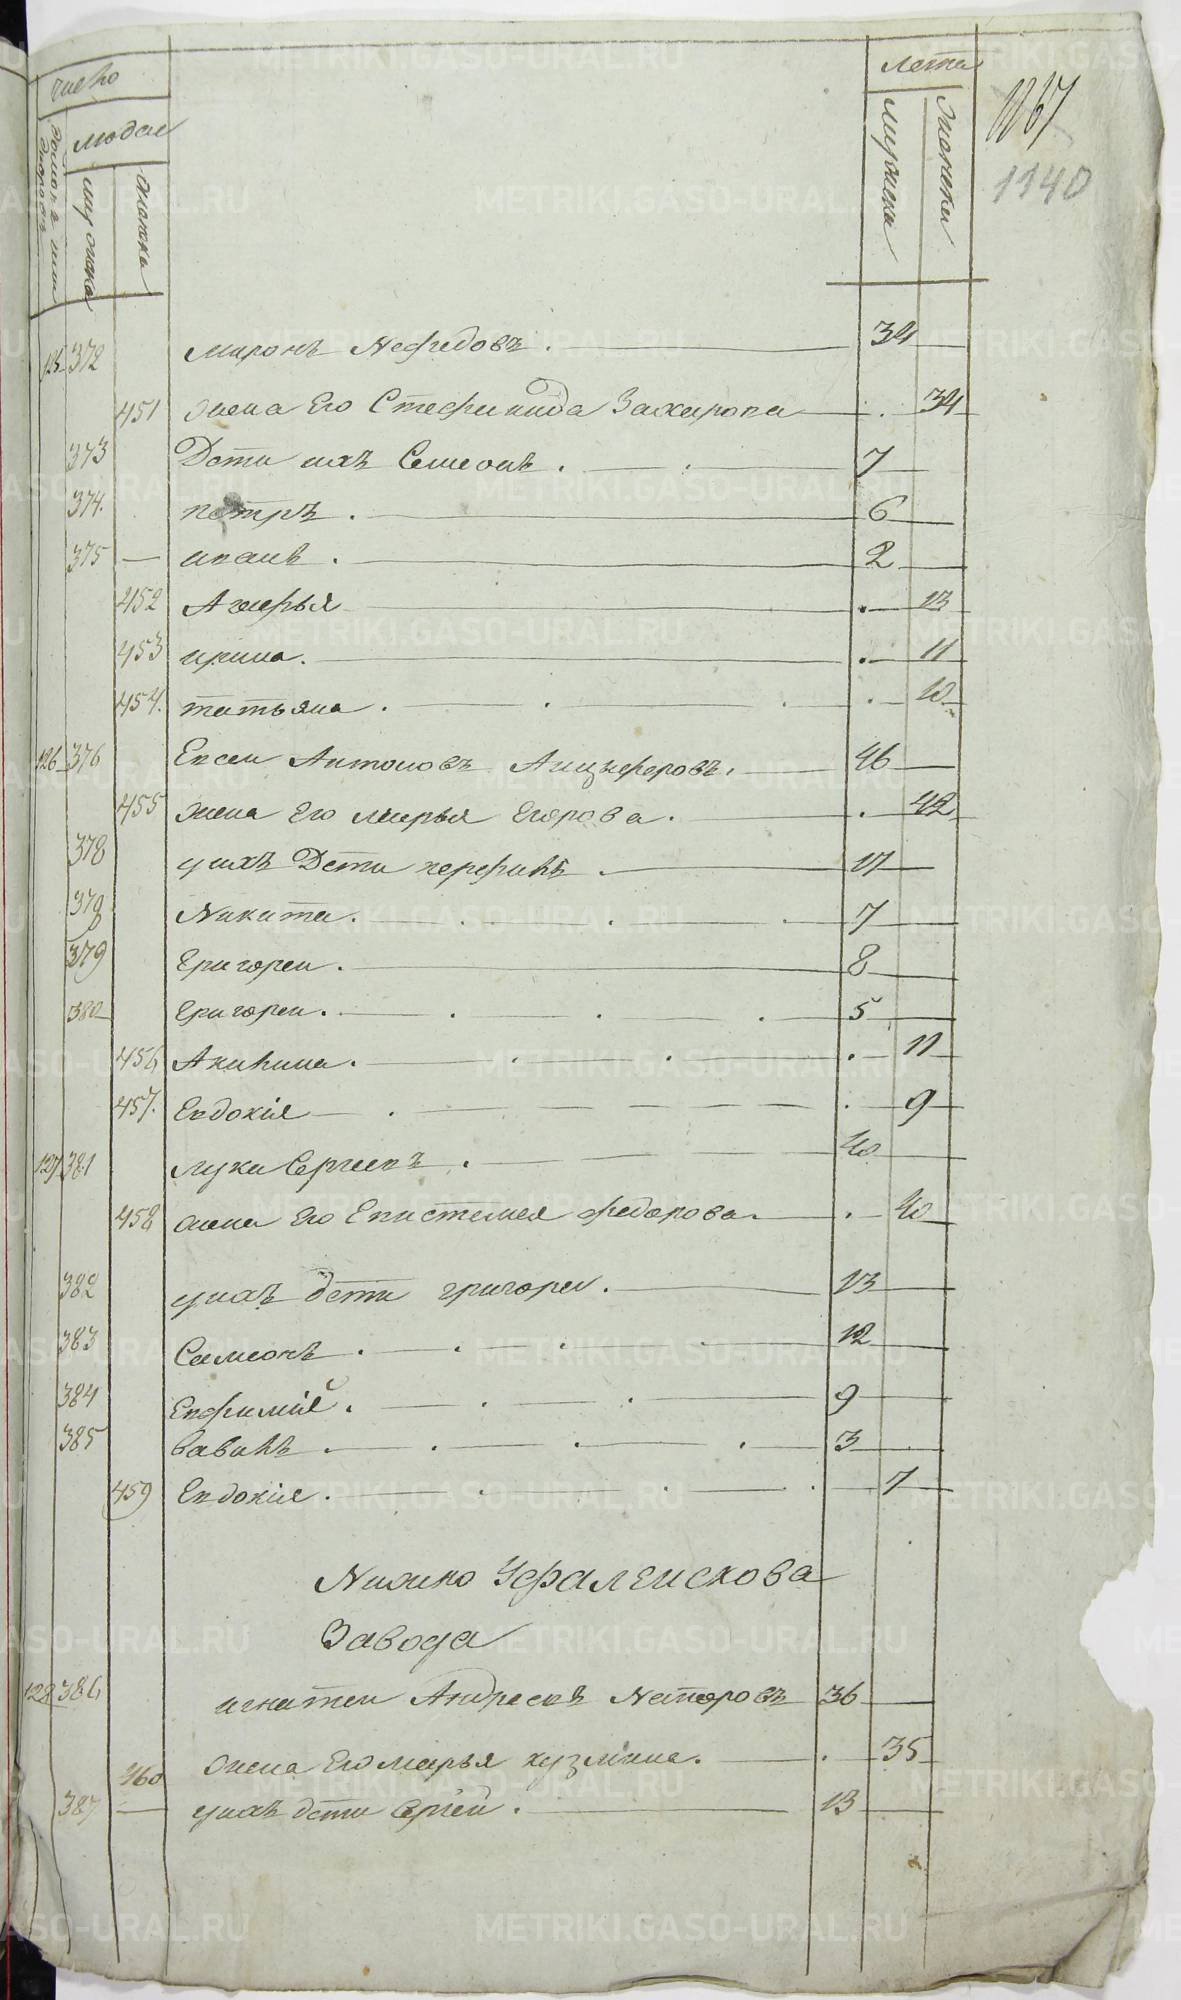 число
лета
1167
1140
людей
мужска
женска
мужеска
женска
125 372 миронъ Нефедовъ . 34
451 жена Его Стефинида Захарова . 34
373 Дети ихъ Семенъ . 7
374. петръ . 6
375 иванъ . 2
452 Амарья . 13
453 ирина . 11
454. татьяна . 10
126 376 Евсеи Антоновъ Анцыферовъ . 46
455 жена Его марья Егорова . 42
378 унихъ Дети перфилъ . 17
379 Никита . 7
379 Григореи . 8
380 Григореи . 5
456 Акилина . 11
457. Евдокія . 9
127 381 лука Сергиевъ . 40
458 жена Его Епистемея федорова . 40
382 унихъ дети григореи . 13
383 Самионъ . 12
384 Евфимий . 9
385 Вавилъ . 3
459 Евдокія . 7
Нижно Уфалеискова
Завода
128 386 игнатеи Андреевъ Нестеровъ 36
460 жена Его марья кузмина . 35
387 унихъ дети Сергей . 13
METRIKI.GASO-URAL.RU